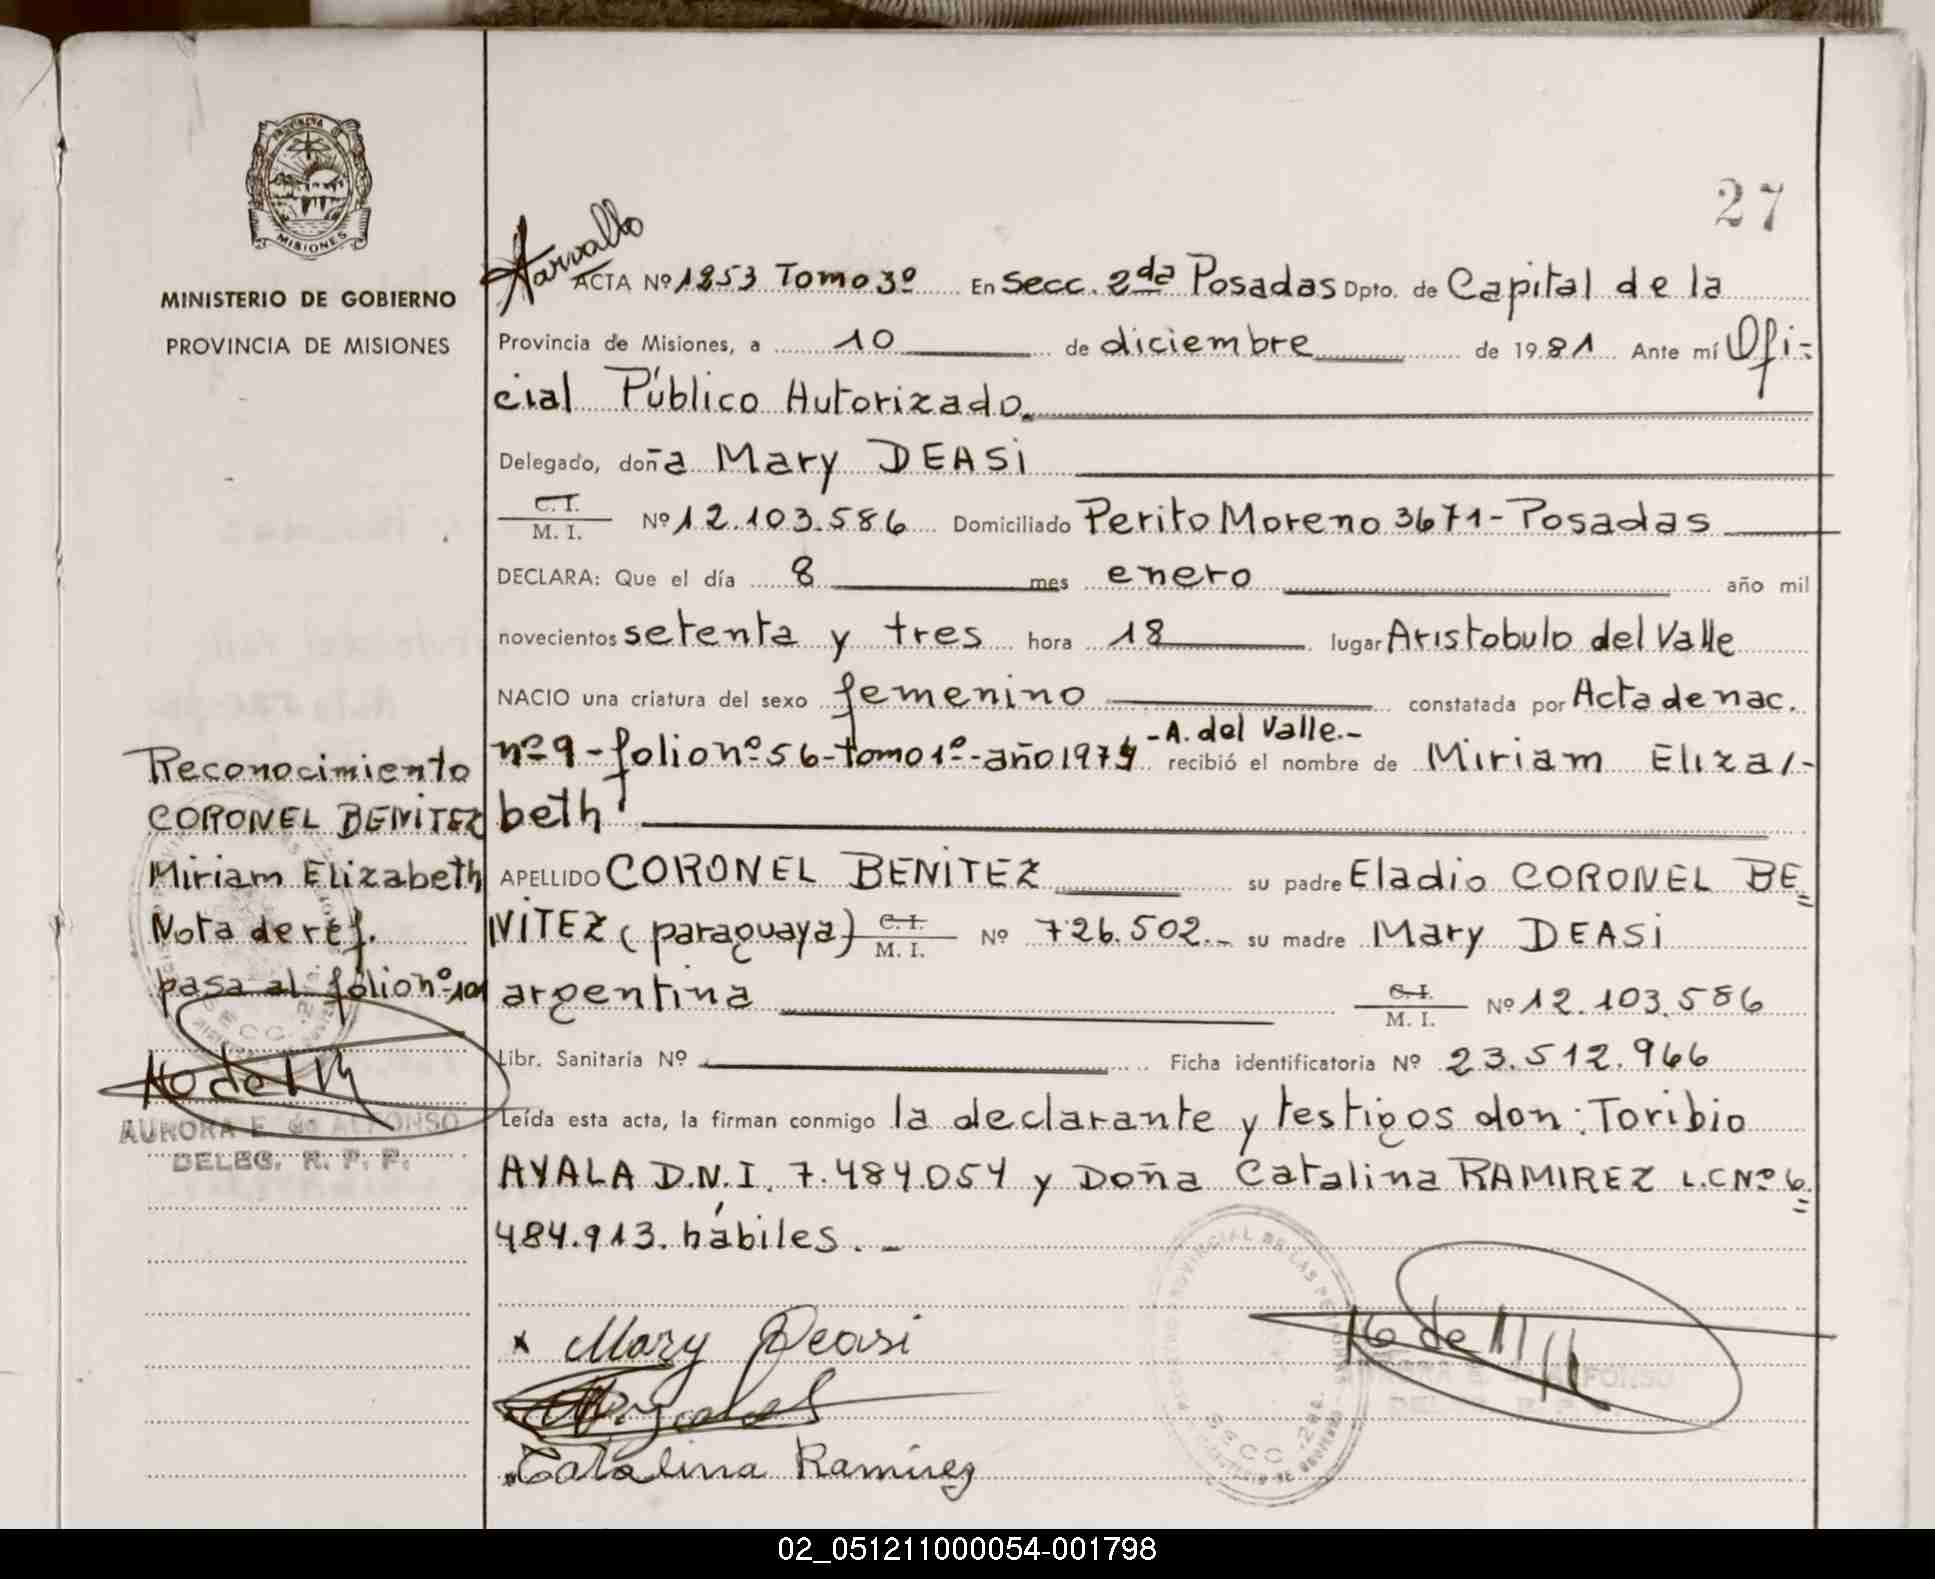 PROVINCIA DE
MISIONES
MINISTERIO DE GOBIERNO
PROVINCIA DE MISIONES
27
ACTA Nº 1253 Tomo 3º En Secc. 2da Posadas Dpto. de Capital de la
Provincia de Misiones, a 10 de diciembre de 1981 Ante mí Ofi-
cial Público Autorizado.
Delegado, doña Mary DEASI
C. I.
M. I. Nº 12.103.586 Domiciliado Perito Moreno 3671 - Posadas
DECLARA: Que el día 8 mes enero año mil
novecientos setenta y tres hora 18 lugar Aristobulo del Valle
NACIO una criatura del sexo femenino constatada por Acta de nac.
nº 9 - folio nº 56 - tomo 1º - año 1974 - A. del Valle.- recibió el nombre de Miriam Eliza-
beth
APELLIDO CORONEL BENITEZ su padre Eladio CORONEL BE=
NITEZ (paraguaya) C. I. M. I. Nº 726.502.- su madre Mary DEASI
argentina C. I. M. I. Nº 12.103.586
Libr. Sanitaria Nº Ficha identificatoria Nº 23.512.966
Leída esta acta, la firman conmigo la declarante y testigos don: Toribio
AYALA D.N.I. 7.484.054 y Doña Catalina RAMIREZ L.C Nº 6.=
484.913. hábiles. -
x Mary Deasi
Catalina Ramirez
Reconocimiento
CORONEL BENITEZ
Miriam Elizabeth
Nota de ref.
pasa al folio nº 101
AURORA E. de ALFONSO
DELEG. R. P. P.
SECC. 2da.
02_051211000054-001798